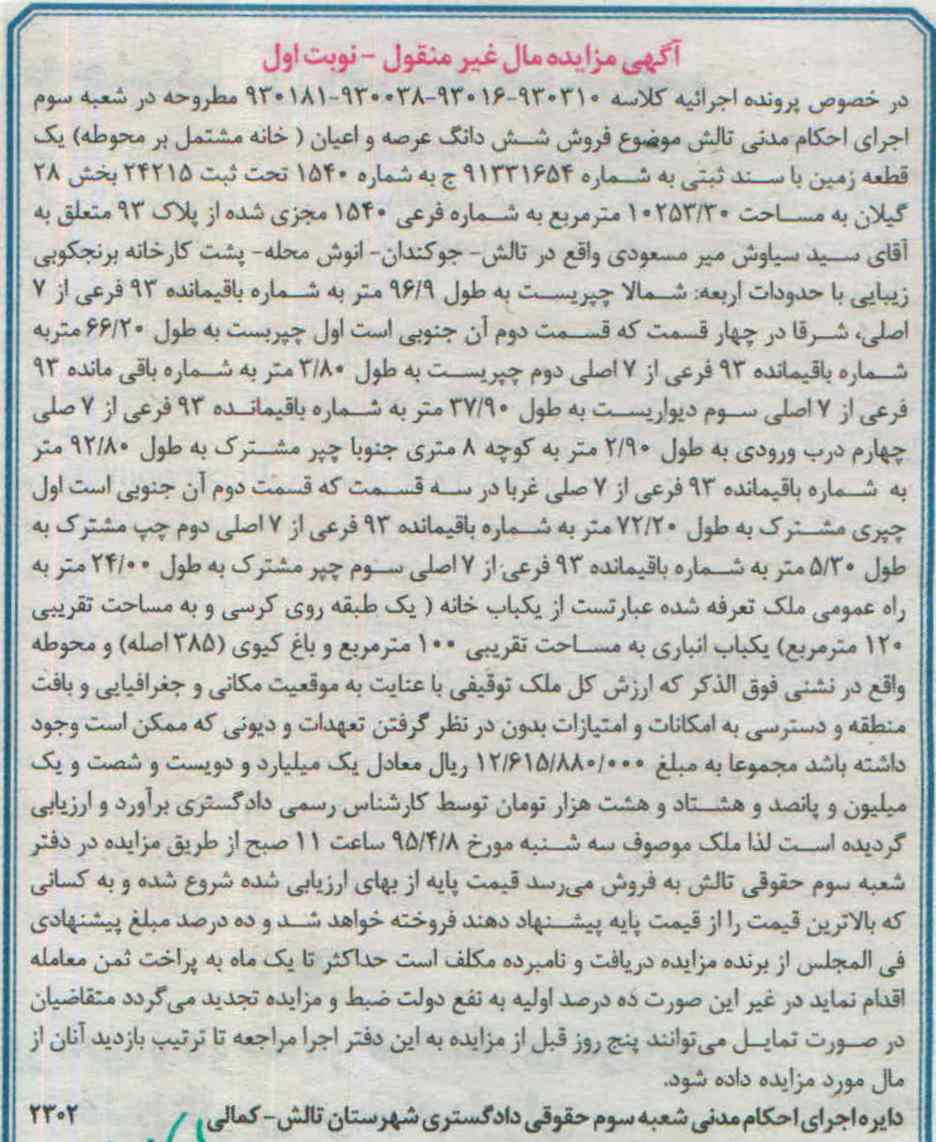 آگهی مزایده مال غیر منقول - نوبت اول
در خصوص پرونده اجرائیه کلاسه ۹۳۰۳۱۰-۹۳۰۱۶-۹۳۰۰۳۸-۹۳۰۱۸۱ مطروحه در شعبه سوم
اجرای احکام مدنی تالش موضوع فروش شش دانگ عرصه و اعیان ( خانه مشتمل بر محوطه) یک
قطعه زمین با سند ثبتی به شماره ۹۱۳۳۱۶۵۴ ج به شماره ۱۵۴۰ تحت ثبت ۲۴۲۱۵ بخش ۲۸
گیلان به مساحت ۱۰۲۵۳/۳۰ مترمربع به شماره فرعی ۱۵۴۰ مجزی شده از پلاک ۹۳ متعلق به
آقای سید سیاوش میر مسعودی واقع در تالش- جوکندان- انوش محله- پشت کارخانه برنجکوبی
زیبایی با حدودات اربعه: شمالا چپریست به طول ۹۶/۹ متر به شماره باقیمانده ۹۳ فرعی از ۷
اصلی، شرقا در چهار قسمت که قسمت دوم آن جنوبی است اول چپربست به طول ۶۶/۲۰ متربه
شماره باقیمانده ۹۳ فرعی از ۷ اصلی دوم چپریست به طول ۳/۸۰ متر به شماره باقی مانده ۹۳
فرعی از ۷ اصلی سوم دیواریست به طول ۳۷/۹۰ متر به شماره باقیمانده ۹۳ فرعی از ۷ صلی
چهارم درب ورودی به طول ۲/۹۰ متر به کوچه ۸ متری جنوبا چپر مشترک به طول ۹۲/۸۰ متر
به شماره باقیمانده ۹۳ فرعی از ۷ صلی غربا در سه قسمت که قسمت دوم آن جنوبی است اول
چپری مشترک به طول ۷۲/۲۰ متر به شماره باقیمانده ۹۳ فرعی از ۷ اصلی دوم چپ مشترک به
طول ۵/۳۰ متر به شماره باقیمانده ۹۳ فرعی از ۷ اصلی سوم چپر مشترک به طول ۲۴/۰۰ متر به
راه عمومی ملک تعرفه شده عبارتست از یکباب خانه ( یک طبقه روی کرسی و به مساحت تقریبی
۱۲۰ مترمربع) یکباب انباری به مساحت تقریبی ۱۰۰ مترمربع و باغ کیوی (۳۸۵ اصله) و محوطه
واقع در نشنی فوق الذکر که ارزش کل ملک توقیفی با عنایت به موقعیت مکانی و جغرافیایی و بافت
منطقه و دسترسی به امکانات و امتیازات بدون در نظر گرفتن تعهدات و دیونی که ممکن است وجود
داشته باشد مجموعا به مبلغ ۱۲/۶۱۵/۸۸۰/۰۰۰ ریال معادل یک میلیارد و دویست و شصت و یک
میلیون و پانصد و هشتاد و هشت هزار تومان توسط کارشناس رسمی دادگستری برآورد و ارزیابی
گردیده است لذا ملک موصوف سه شنبه مورخ ۹۵/۴/۸ ساعت ۱۱ صبح از طریق مزایده در دفتر
شعبه سوم حقوقی تالش به فروش می‌رسد قیمت پایه از بهای ارزیابی شده شروع شده و به کسانی
که بالاترین قیمت را از قیمت پایه پیشنهاد دهند فروخته خواهد شد و ده درصد مبلغ پیشنهادی
فی المجلس از برنده مزایده دریافت و نامبرده مکلف است حداکثر تا یک ماه به پراخت ثمن معامله
اقدام نماید در غیر این صورت ده درصد اولیه به نفع دولت ضبط و مزایده تجدید می‌گردد متقاضیان
در صورت تمایل می‌توانند پنج روز قبل از مزایده به این دفتر اجرا مراجعه تا ترتیب بازدید آنان از
مال مورد مزایده داده شود.
دایره اجرای احکام مدنی شعبه سوم حقوقی دادگستری شهرستان تالش- کمالی ۲۳۰۲